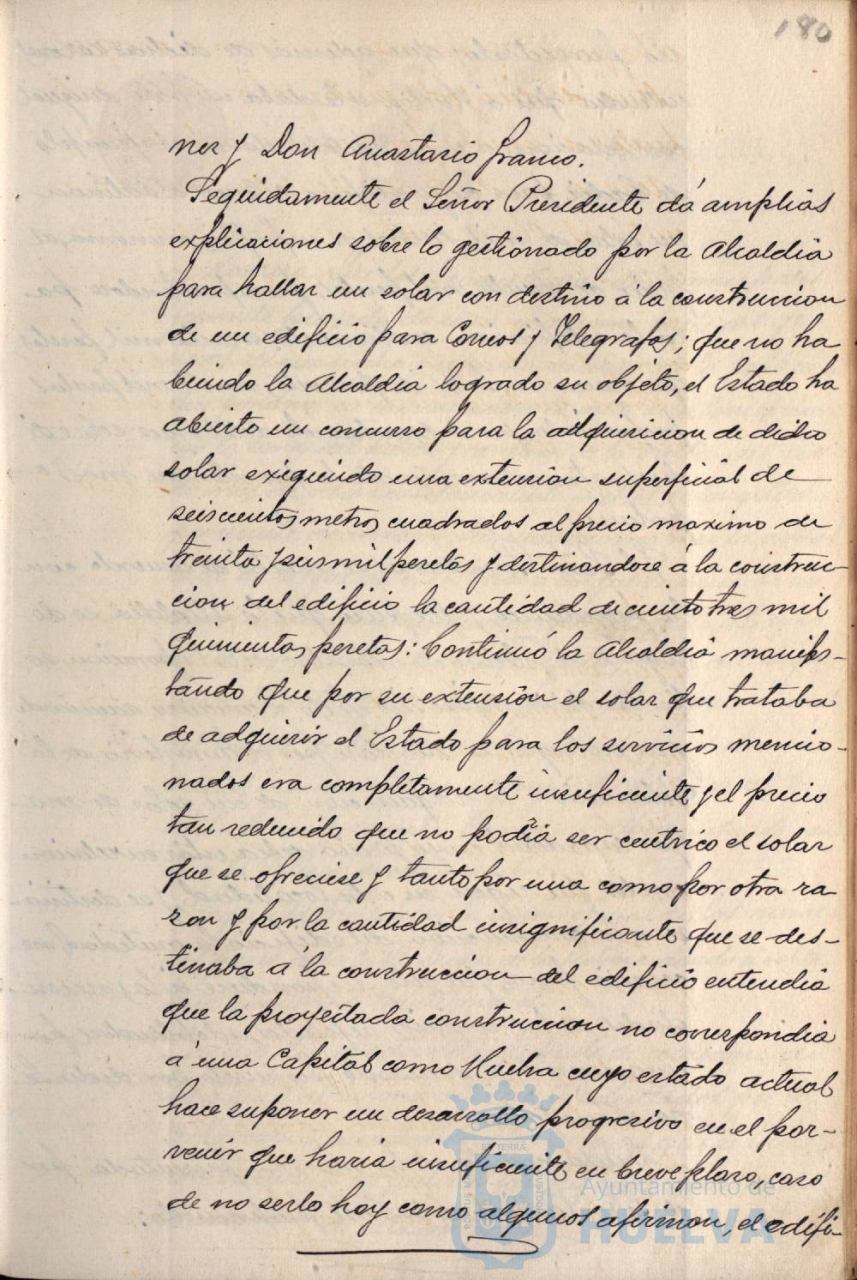 180
nez y Don Anastasio Franco.
Seguidamente el Señor Presidente dá amplias
explicaciones sobre lo gestionado por la Alcaldia
para hallar un solar con destino á la construccion
de un edificio para Correos y Telegrafos; que no ha
biendo la Alcaldia logrado su objeto, el Estado ha
abierto un concurso para la adquisicion de dicho
solar exigiendo una extension superficial de
seiscientos metros cuadrados al precio maximo de
treinta y seis mil pesetas y destinandose á la construc-
cion del edificio la cantidad de ciento tres mil
quinientas pesetas: Continuó la Alcaldia manifes-
tando que por su extensión el solar que trataba
de adquirir el Estado para los servicios mencio-
nados era completamente insuficiente y el precio
tan reducido que no podia ser centrico el solar
que se ofreciese y tanto por una como por otra ra
zon y por la cantidad insignificante que se des-
tinaba á la construccion del edificio entendia
que la proyectada construccion no correspondia
á una Capital como Huelva cuyo estado actual
hace suponer un desarrollo progresivo en el por-
venir que haria insuficiente en breve plazo, caso
de no serlo hoy como algunos afirman, el edifi-
Ayuntamiento de
HUELVA